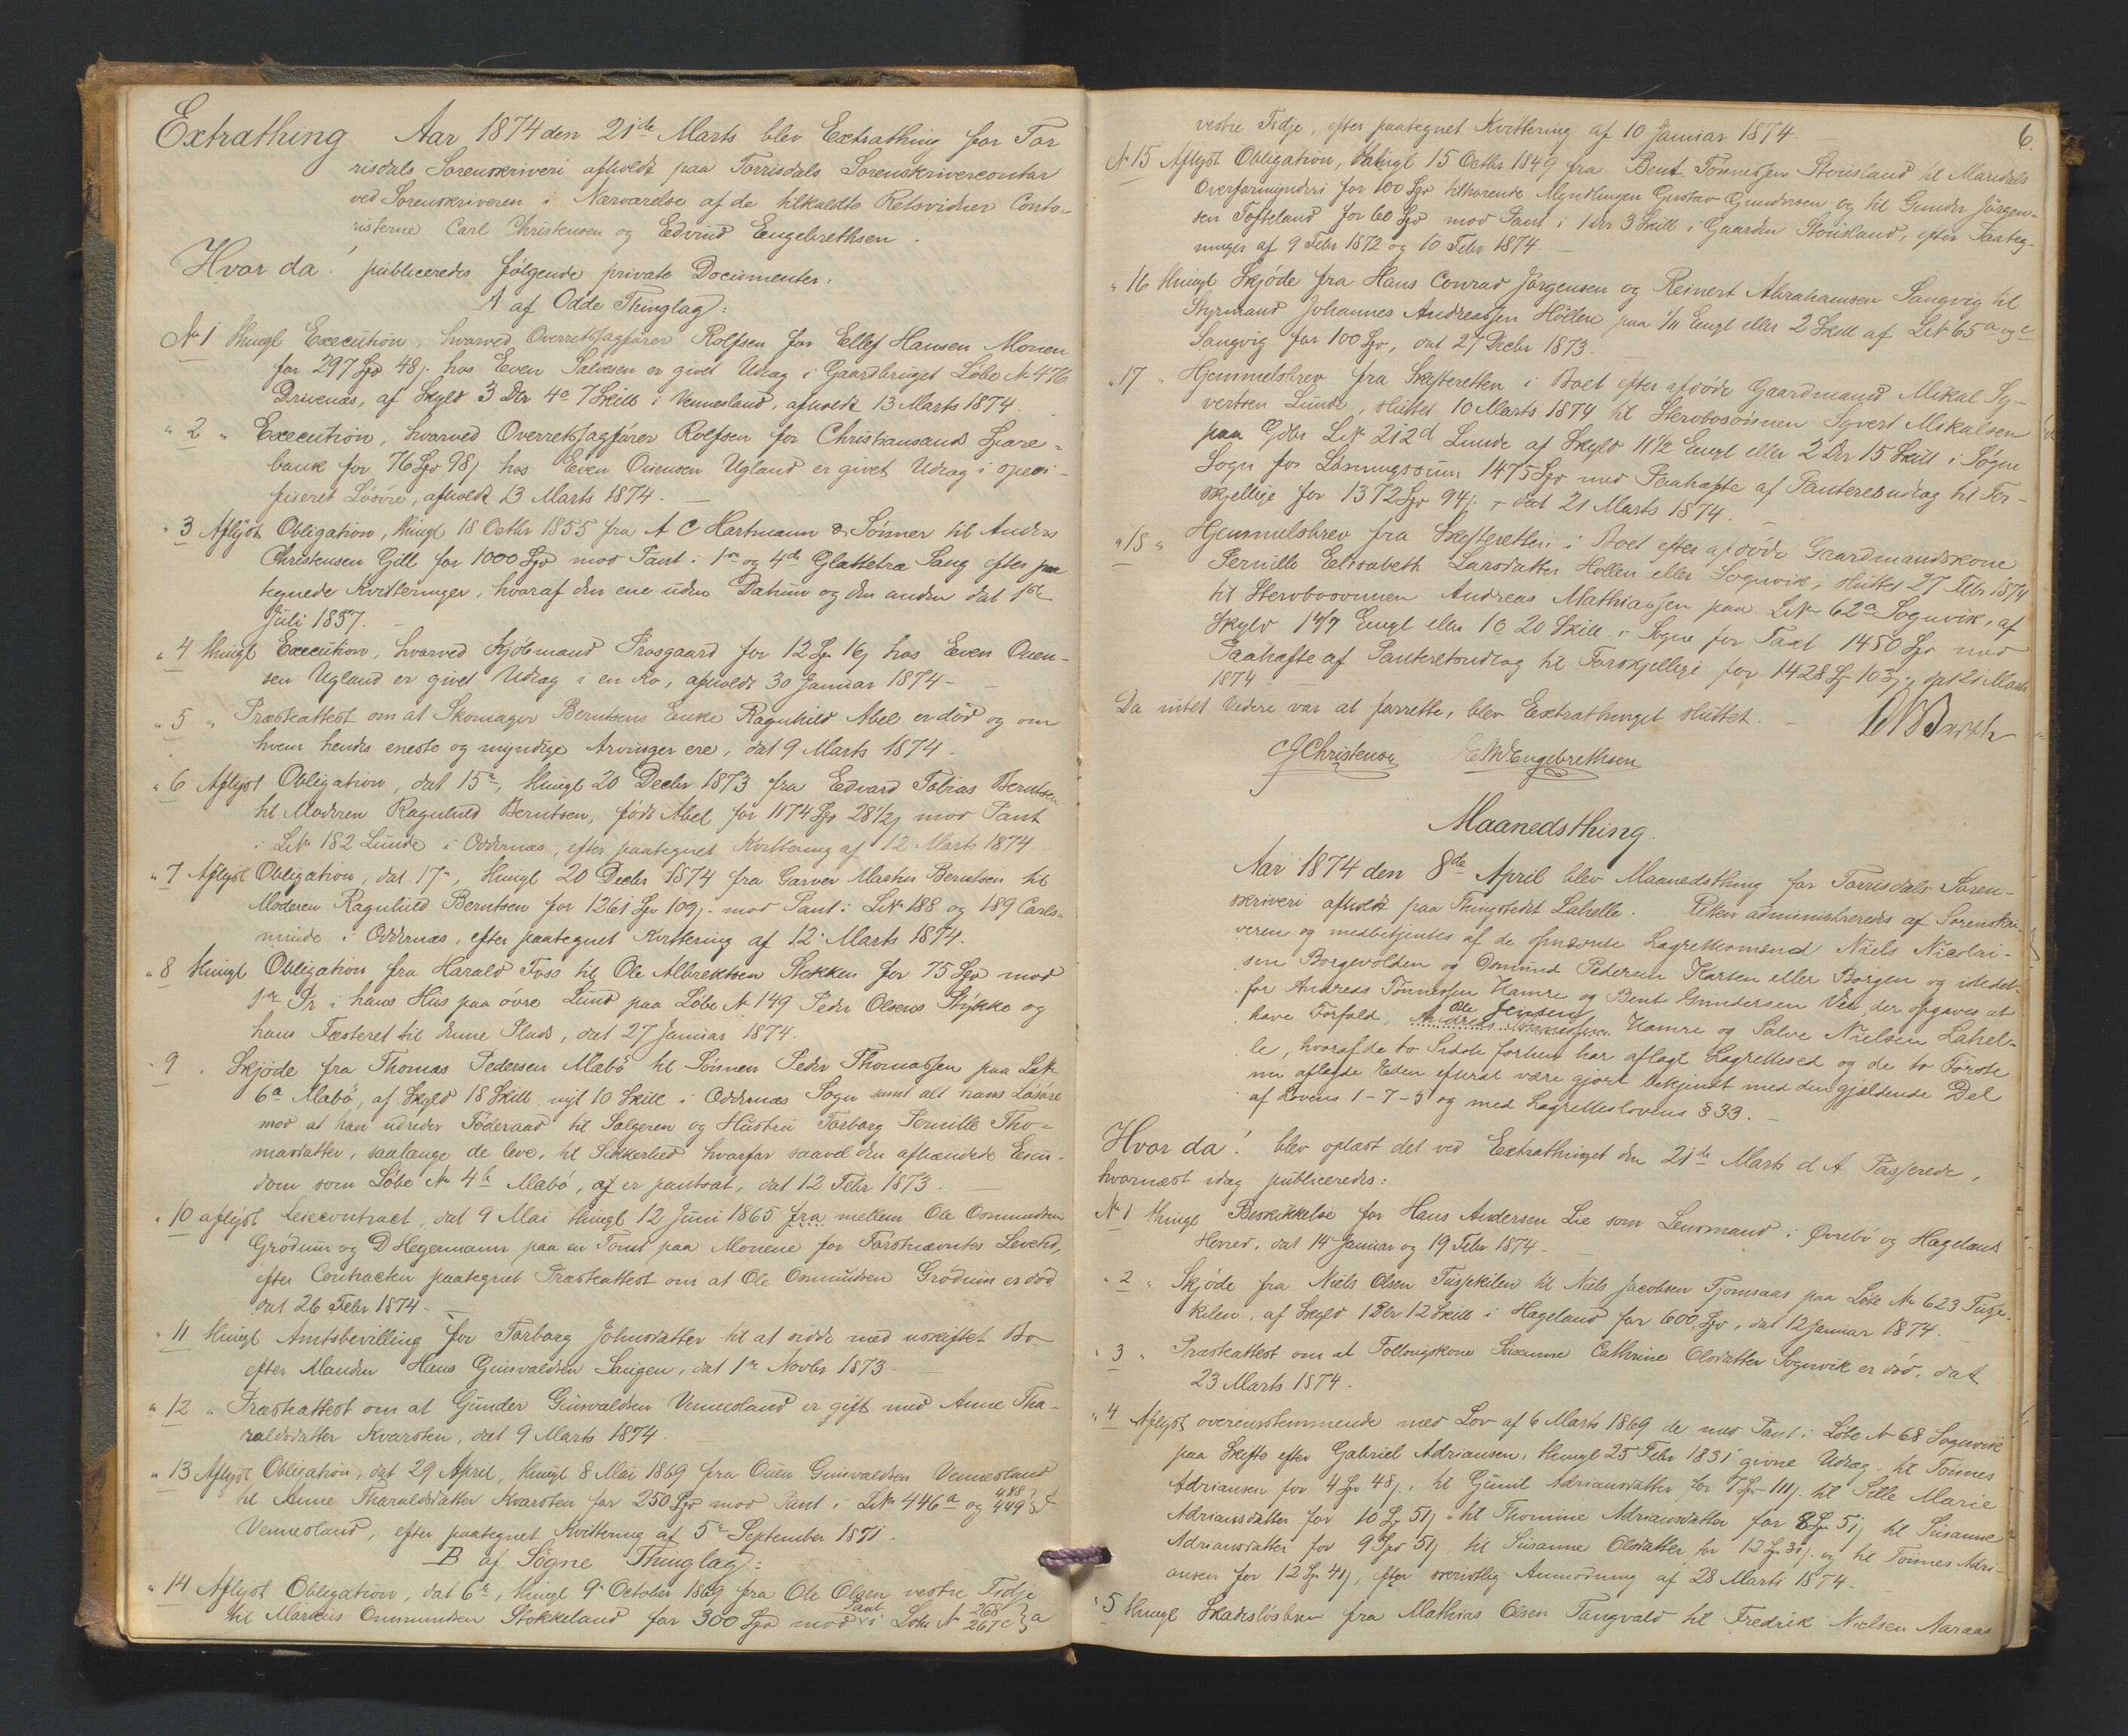 Extrathing Aar 1874 den 21de Marts blev Extrathing for Tor
risdals Sorenskriveri afholdt paa Torrisdals Sorenskrivercontor
ved Sorenskriveren i Nærværelse af de tilkaldte Retsvidner Conto-
risterne Carl Christensen og Edvind Engebrethsen.
Hvor da! publiceredes følgende private Documenter:
A af Odde Thinglag:
No 1 thingl Execution, hvorved Overretssagfører Rolfsen for Ellef Hansen Monen
for 297 Spd 48 j. hos Even Salvesen er givet Udlæg i Gaardbruget Løbe No 476
Drivenæs, af Skyld 3 Dlr 4 o 7 Skill i Vennesland, afholdt 13 Marts 1874.
" 2 " Execution, hvorved Overretssagfører Rolfsen for Christiansands Spare-
bank for 76 Spd 98 j hos Even Ouensen Ugland er givet Udlæg i speci-
ficeret Løsøre, afholdt 13 Marts 1874. —
" 3 Aflyst Obligation, thingl 18 Octbr 1855 fra A C Hartmann & Sønner til Anders
Christensen Gill for 1000 Spd mod Pant i 1ste og 4de Glattetre Sang efter paa
tegnede Kvitteringer, hvoraf den ene uden Datum og den anden dat 1ste
Juli 1857.
" 4 thingl Execution, hvorved Kjøbmand Prosgaard for 12 Sp 16 j hos Even Ouen-
sen Ugland er givet Udlæg i en Ko, afholdt 30 Januar 1874 —
" 5 " Præsteattest om at Skomager Berntsens Enke Ragnhild Abel er død og om
hvem hendes eneste og myndige Arvinger ere, dat 9 Marts 1874.
" 6 Aflyst Obligation, dat 15de, thingl 20 Decbr 1873 fra Edvard Tobias Berntsen
til Moderen Ragnhild Berntsen, født Abel for 1174 Spd 28 1/2 j mod Pant
i LNo 182 Lunde i Oddernæs, efter paategnet Kvittering af 12 Marts 1874
" 7 Aflyst Obligation, dat 17de, thingl 20 Decbr 1874 fra Garver Mathis Berntsen til
Moderen Ragnhild Berntsen for 1261 Spd 109 j. mod Pant i LNo 188 og 189 Carls-
minde i Oddernæs, efter paategnet Kvittering af 12 Marts 1874.
" 8 thingl Obligation fra Harald Foss til Ole Albrektsen Stokken for 75 Spd mod
1ste Pr i hans Hus paa øvre Lund paa Løbe No 149 Peder Olsens Stykke og
hans Fæsteret til denne Plads, dat 27 Januar 1874.
" 9 " Skjøde fra Thomas Pedersen Mæbø til Sønnen Peder Thomassen paa LNo
6a Mæbø, af Skyld 18 Skill nyt 10 Skill i Oddernæs Sogn samt alt hans Løsøre
mod at han udreder Føderaad til Sælgeren og Hustru Torborg Pernille Tho-
masdatter, saalænge de leve, til Sikkerhed hvorfor saavel den afhændede Eien-
dom som Løbe No 4b Mæbø, af er pantsat, dat 12 Febr 1873. —
" 10 aflyst Leiecontract, dat 9 Mai thingl 12 Juni 1865 fra mellem Ole Osmundsen
Grødum og D Hegermann paa en Tomt paa Monene for Førstnævntes Levetid,
efter Contracten paategnet Præsteattest om at Ole Osmundsen Grødum er død
dat 26 Febr 1874 —
" 11 thingl Amtsbevilling for Torborg Johnsdatter til at sidde med uskiftet Bo
efter Manden Hans Gunvaldsen Langen, dat 1ste Novbr 1873. —
" 12 " Præsteattest om at Gunder Gunvaldsen Vennesland er gift med Anne Tha-
raldsdatter Kvarsten, dat 9 Marts 1874.
" 13 Aflyst Obligation, dat 29 April, thingl 8 Mai 1869 fra Ouen Gunvaldsen Vennesland
til Anne Tharaldsdatter Kvarsten for 250 Spd mod Pant i LNo 446a og 448 449
Vennesland, efter paategnet Kvittering af 5te September 1871.
B af Søgne Thinglag:
" 14 Aflyst Obligation, dat 6te, thingl 9 October 1869 fra Ole Olsen vestre Tidje
til Markus Ommundsen Stokkeland for 300 Spd mod Pant i Løbe No 268 267c a
6.
vestre Tidje, efter paategnet Kvittering af 10 Januar 1874. —
No 15 Aflyst Obligation, thingl 15 Octbr 1849 fra Bent Tønnessen Stousland til Mandals
Overformynderi for 100 Spd tilhørende Myndlingen Gustav Gundersen og til Gunder Jørgen-
sen Tofteland for 60 Spd mod Pant i 1 Dlr 3 Skill i Gaarden Stousland, efter Paateg-
ninger af 9 Febr 1872 og 10 Febr 1874. —
" 16 thingl Skjøde fra Hans Conrad Jørgensen og Reinert Abrahamsen Langvig til
Styrmand Johannes Andreassen Høllen paa 1/11 Engl eller 2 Skill af LNo 65a og c
Langvig for 100 Spd, dat 27 Decbr 1873.
" 17 " Hjemmelsbrev fra Skifteretten i Boet efter afdøde Gaardmand Mikal Sy-
vertsen Lunde, sluttet 10 Marts 1874 til Stervbosønnen Syvert Mikalsen
paa Gdbr LNo 212d Lunde af Skyld 11 1/2 Engl eller 2 Dlr 15 Skill i Søgne
Sogn for Løsningssum 1475 Spd med Paahæfte af Panteretsudlæg til For-
skjellige for 1372 Spd 94 j. – dat 21 Marts 1874.
" 18 " Hjemmelsbrev fra Skifteretten i Boet efter afdøde Gaardmandskone
Pernille Elisabeth Larsdatter Høllen eller Sognvik, sluttet 27 Febr 1874
til Stervbosønnen Andreas Mathiassen paa LNo 62a Sognvik, af
Skyld 1 4/7 Engl eller 1 o 20 Skill i Søgne for Taxt 1450 Spd med
Paahæfte af Panteretsudlæg til Forskjellige for 1428 Sp 103 j., dat 21 Marts
1874
Da intet videre var at forrette, blev Extrathinget sluttet. —
CJChristensen E.M.Engebrethsen
Maanedsthing.
Aar 1874 den 8de April blev Maanedsthing for Torrisdals Soren-
skriveri afholdt paa Thingstedet Lahelle. Retten administreredes af Sorenskri-
veren og medbetjentes af de opnævnte Lagrettesmænd Niels Nicolai-
sen Borgevolden og Osmund Pedersen Karsten eller Borgen og istedet-
for Andreas Tønnessen Hamre og Bent Gundersen Vee, der opgaves at
have Forfald, Andreas Tønnessen Ole Jensen Hamre og Salve Nielsen Lahel-
le, hvoraf de to Sidste forhen har aflagt Lagrettesed og de to Første
nu aflagde Eden efterat være gjort bekjendt med den gjældende Del
af Lovens 1-7-5 og med Lagretteslovens § 33. —
Hvor da! blev oplæst det ved Extrathinget den 21de Marts d A Passerede,
hvornæst idag publiceredes:
No 1 thingl Beskikkelse for Hans Andersen Lie som Lensmand i Øvrebø og Hægelands
Herred, dat 14 Januar og 19 Febr 1874. —
" 2 " Skjøde fra Niels Olsen Tussekilen til Niels Jacobsen Tjomsaas paa Løbe No 623 Tusse-
kilen, af Skyld 1 Dlr 12 Skill i Hægeland for 600 Spd, dat 12 Januar 1874. —
" 3 " Præsteattest om at Follougskone Susanne Cathrine Olsdatter Sognvik er død, dat
23 Marts 1874.
" 4 Aflyst overensstemmende med Lov af 6 Marts 1869 de med Pant i Løbe No 68 Sognvik
paa Skifte efter Gabriel Adriansen, thingl 25 Febr 1831 givne Udlæg til Tønnes
Adriansen for 4 Sp 48 j., til Gunil Adriansdatter for 7 Sp 111 j. til Sille Marie
Adriansdatter for 10 Sp 51 j. til Thomine Adriansdatter for 8 Sp 51 j til Susanne
Adriansdatter for 9 Spd 51 j til Susanne Olsdatter for 12 Sp 31 j. og til Tønnes Adri-
ansen for 12 Sp 41 j, efter skriftlig Anmodning af 28 Marts 1874 —
" 5 thingl Skadesløsbrev fra Mathias Olsen Tangvald til Fredrik Nielsen Aaraas